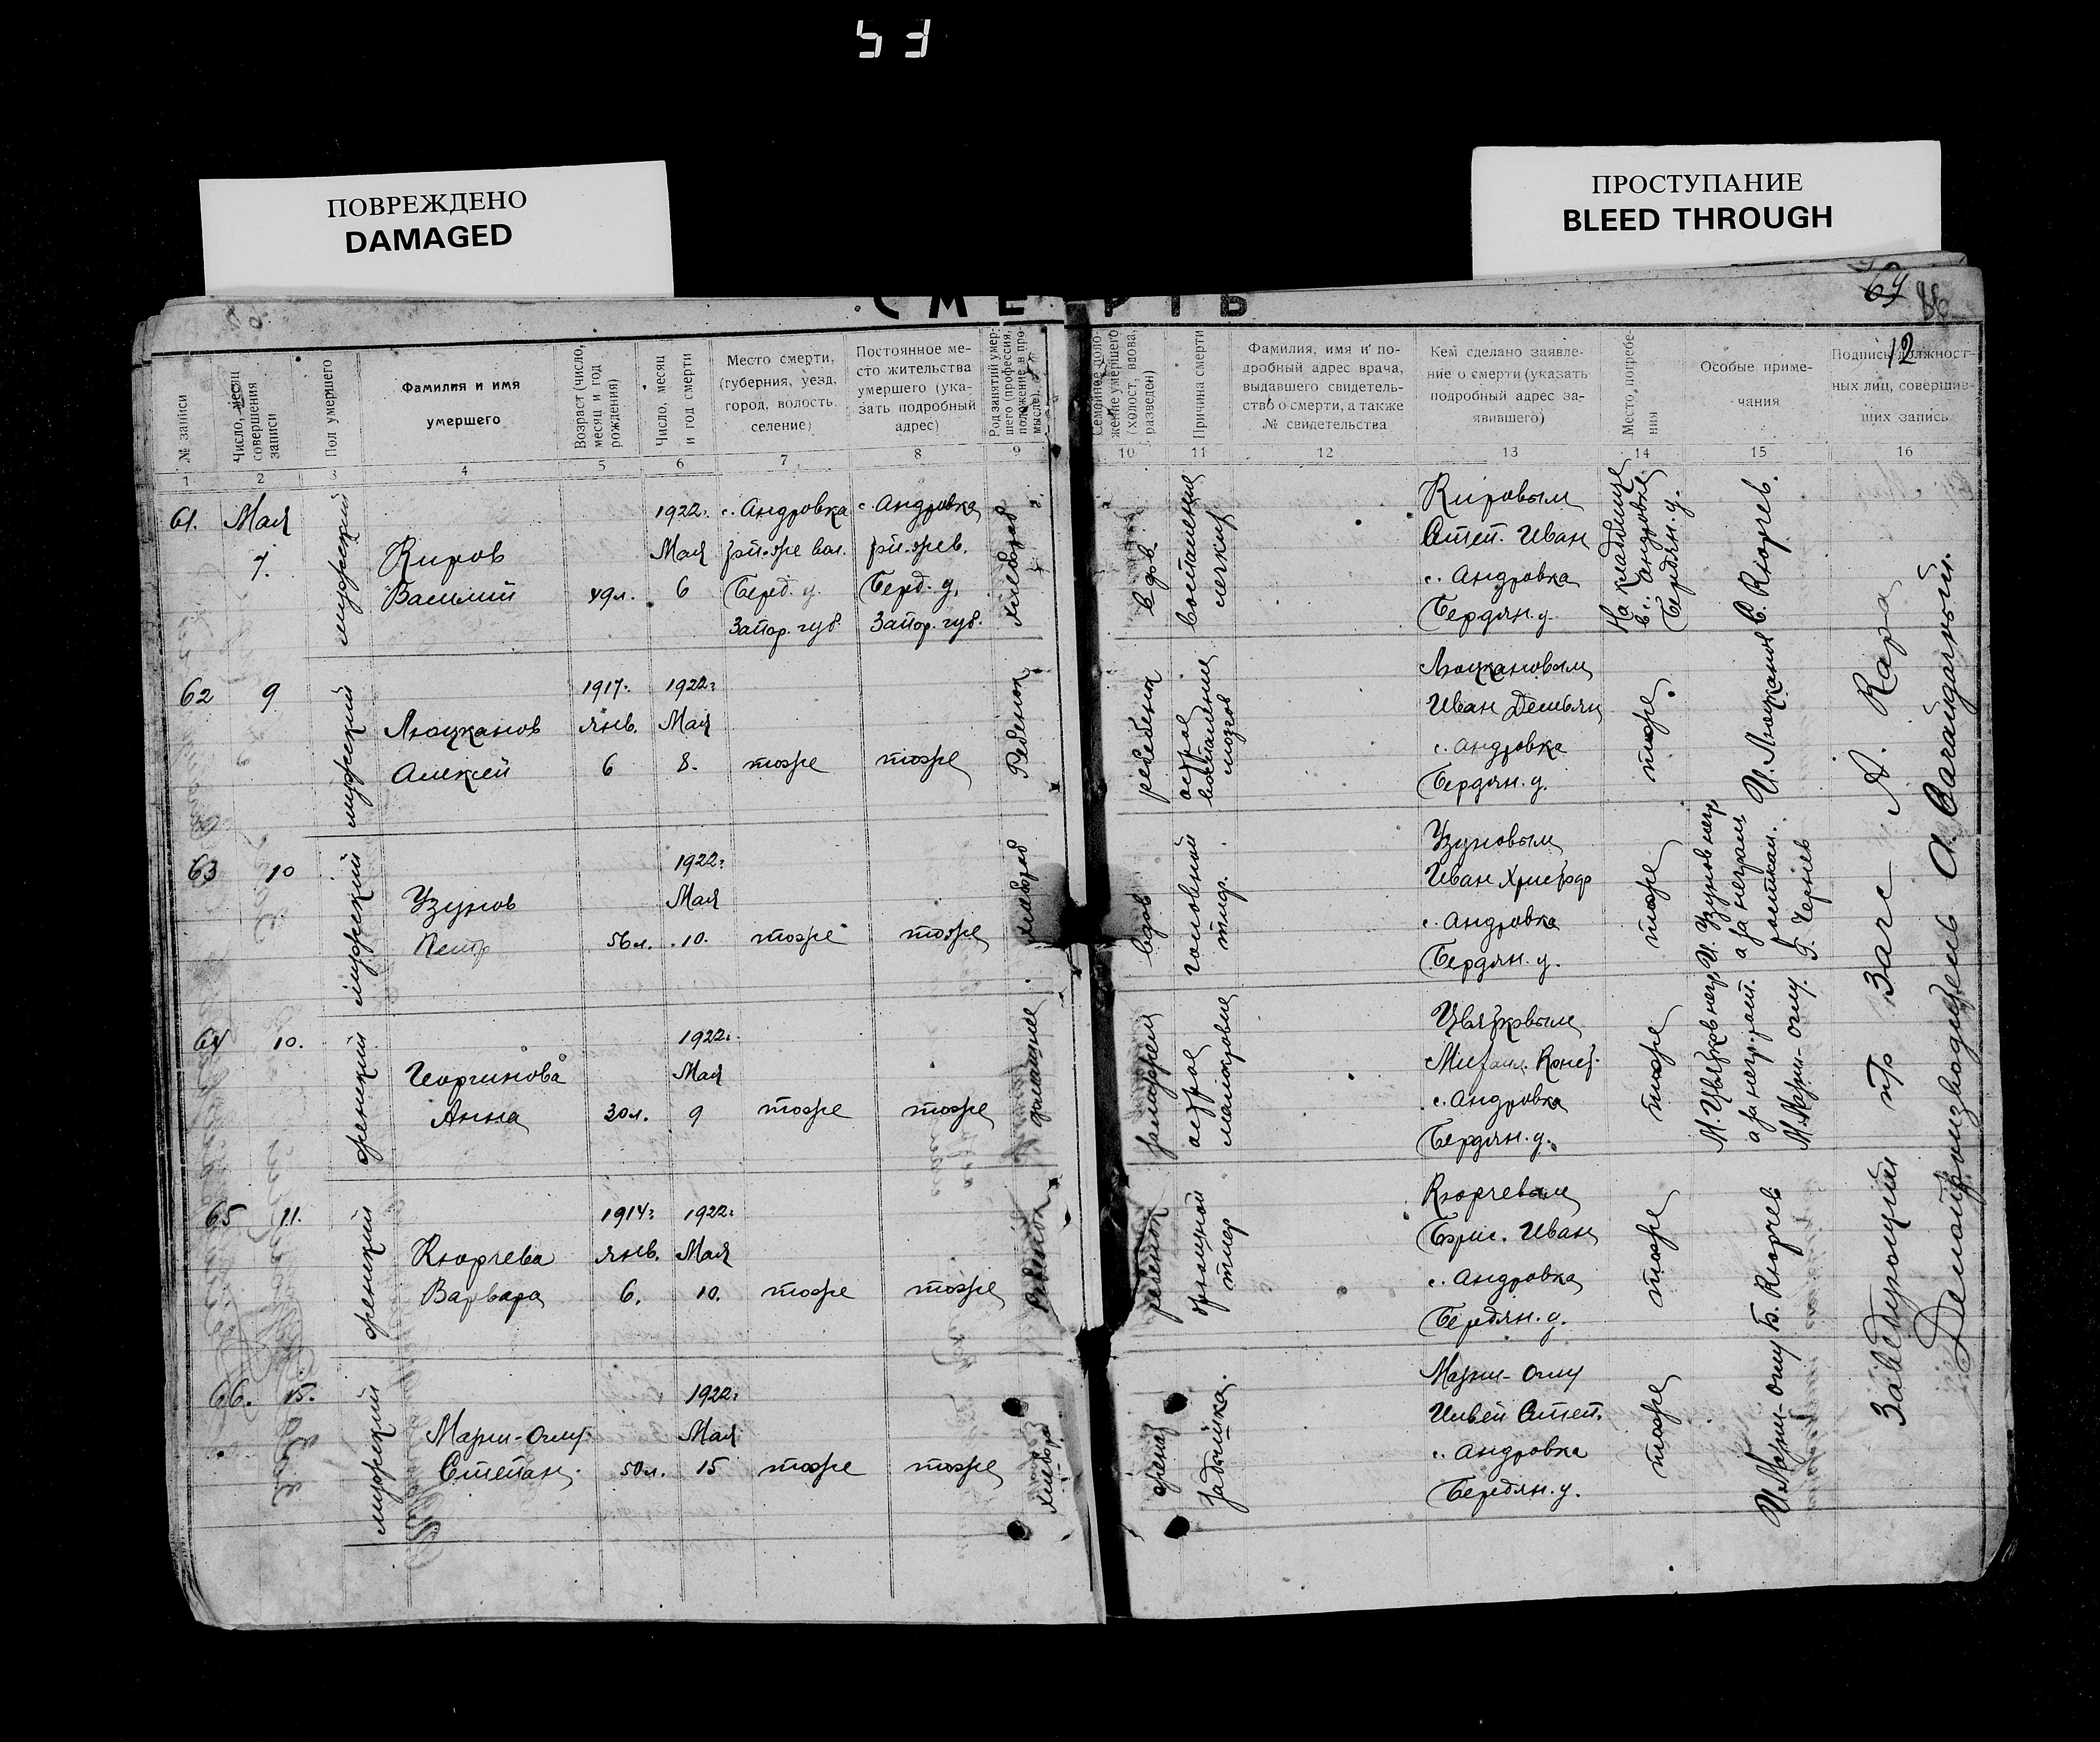 53
ПОВРЕЖДЕНО
DAMAGED
ПРОСТУПАНИЕ
BLEED THROUGH
69
СМЕРТЬ
12
№ записи
Число, месяц совершения записи
Пол умершего
Фамилия и имя умершего
Возраст (число, месяц и год рождения)
Число, месяц и год смерти
Место смерти, (губерния, уезд, город, волость, селение)
Постоянное место жительства умершего (указать подробный адрес)
Род занятий умершего (профессия, положение в промысле)
Семейное положение умершего (холост, вдова, разведен)
Причина смерти
Фамилия, имя и подробный адрес врача, выдавшего свидетельство о смерти, а также № свидетельства
Кем сделано заявление о смерти (указать подробный адрес заявившего)
Место погребения
Особые примечания
Подпись должностных лиц, совершивших запись
1 2 3 4 5 6 7 8 9 10 11 12 13 14 15 16
61. Мая 7.
мужский
Киров
Василий
49л.
1922г. Мая 6
с. Андровка
Берд. у.
Запор. губ.
с. Андровка
Берд. у.
Запор. губ.
хлебороб
вдов.
воспаление легких
Кировым
Степ. Иван
с. Андровка
Бердян. у.
На кладбище
в с. Андровке
Бердян. у.
В. Кюрчев.
62 9
мужский
Люцканов
Алексей
1917г. янв. 6
1922г. Мая 8.
тоже
тоже
Ребенок
ребенок
острое воспаление мозгов
Люцкановым
Иван Демьян
с. Андровка
Бердян. у.
тоже
И. Люцканов
63 10
мужский
Узунов
Петр
56л.
1922г. Мая 10.
тоже
тоже
хлебороб
вдов
головной тиф.
Узуновым
Иван Христоф
с. Андровка
Бердян. у.
тоже
И. Узунов негр.
а за неграм.
расписал.
64 10.
женский
Георгинова
Анна
30л.
1922г. Мая 9
тоже
тоже
домашнее
замужем
острое малокровие
Цвятковым
Михаил. Конст.
с. Андровка
Бердян. у.
тоже
М. Цвятков негр.
а за негр. расп.
М. Мазли-оглу.
65 11.
женский
Кюрчева
Варвара
1914г. янв. 6.
1922г. Мая 10.
тоже
тоже
Ребенок
ребенок
брюшной тиф
Кюрчевым
Борис. Иван
с. Андровка
Бердян. у.
тоже
Б. Кюрчев
66. 15.
мужский
Мазли-оглу
Степан.
50л.
1922г. Мая 15
тоже
тоже
хлебороб
женат
Мазли-оглу
Степ.
с. Андровка
Бердян. у.
тоже
И. Мазли-оглу
Заведующий п/о Загс А. Кара
Делопроизводитель А. Сагайдачный.